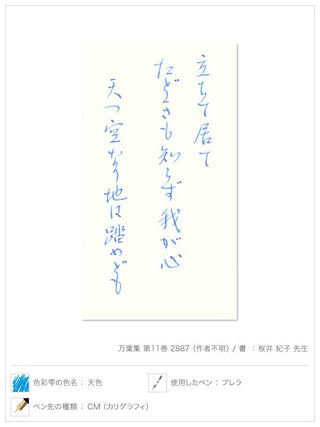 立ちて居て
たどきも知らず我が心
天つ空なり地は踏めども
万葉集 第11巻 2887 (作者不明) / 書 : 桜井 紀子 先生
色彩雫の色名 : 天色
使用したペン : プレラ
ペン先の種類 : CM (カリグラフィ)